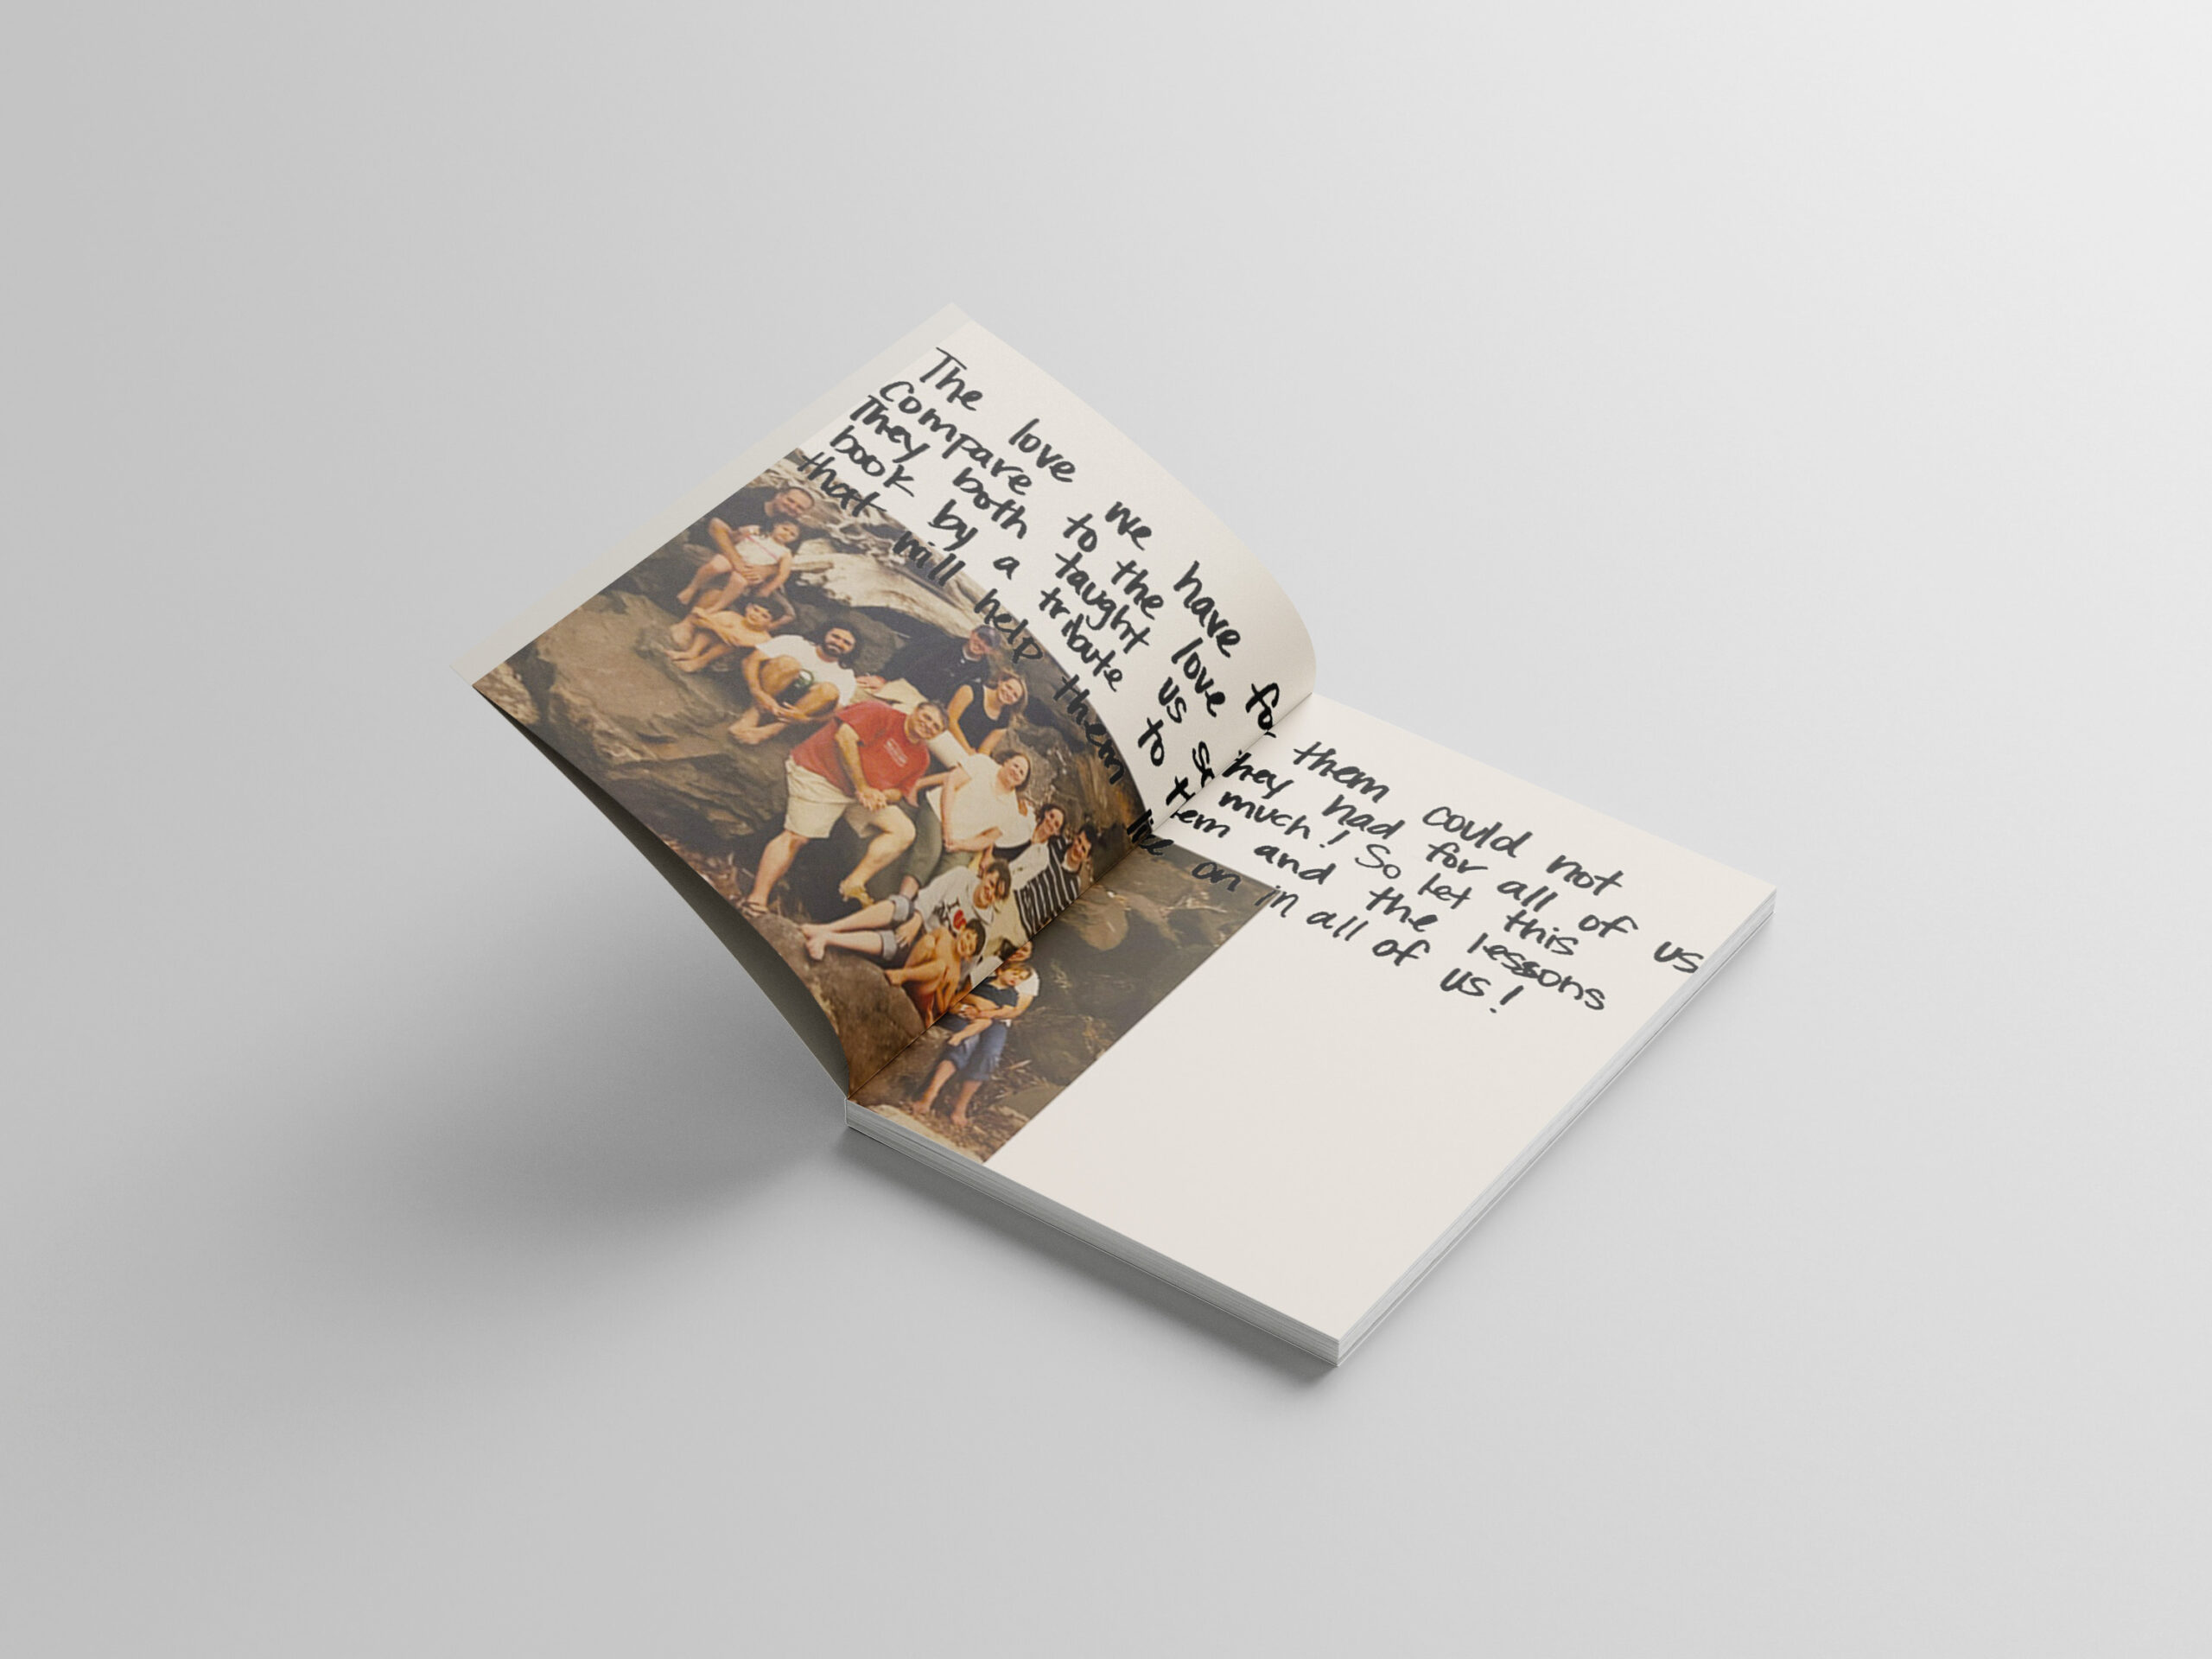 The love we have for them could not
Compare to the love they had for all of us
They both taught us so much! So let this
book by a tribute to them and the lessons
that will help them live on in all of us!